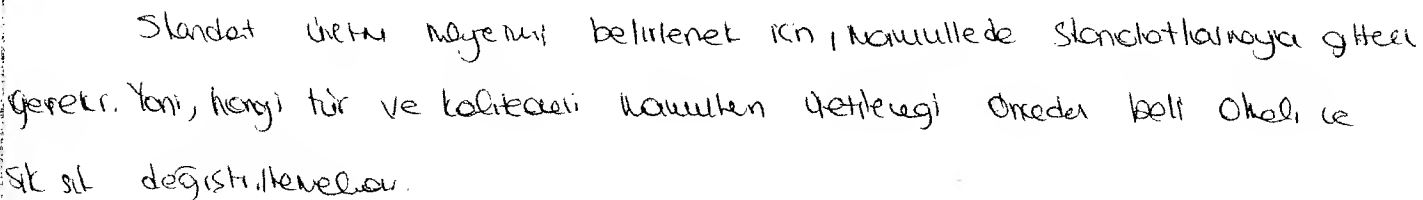 Standart üretim maliyetini belirlemek için, mamullerde standartlaşmaya gitmek
gerekir. Yani, hangi tür ve kalitedeki mamulden üretileceği önceden belli olmalı ve
sık sık değiştirilmemelidir.